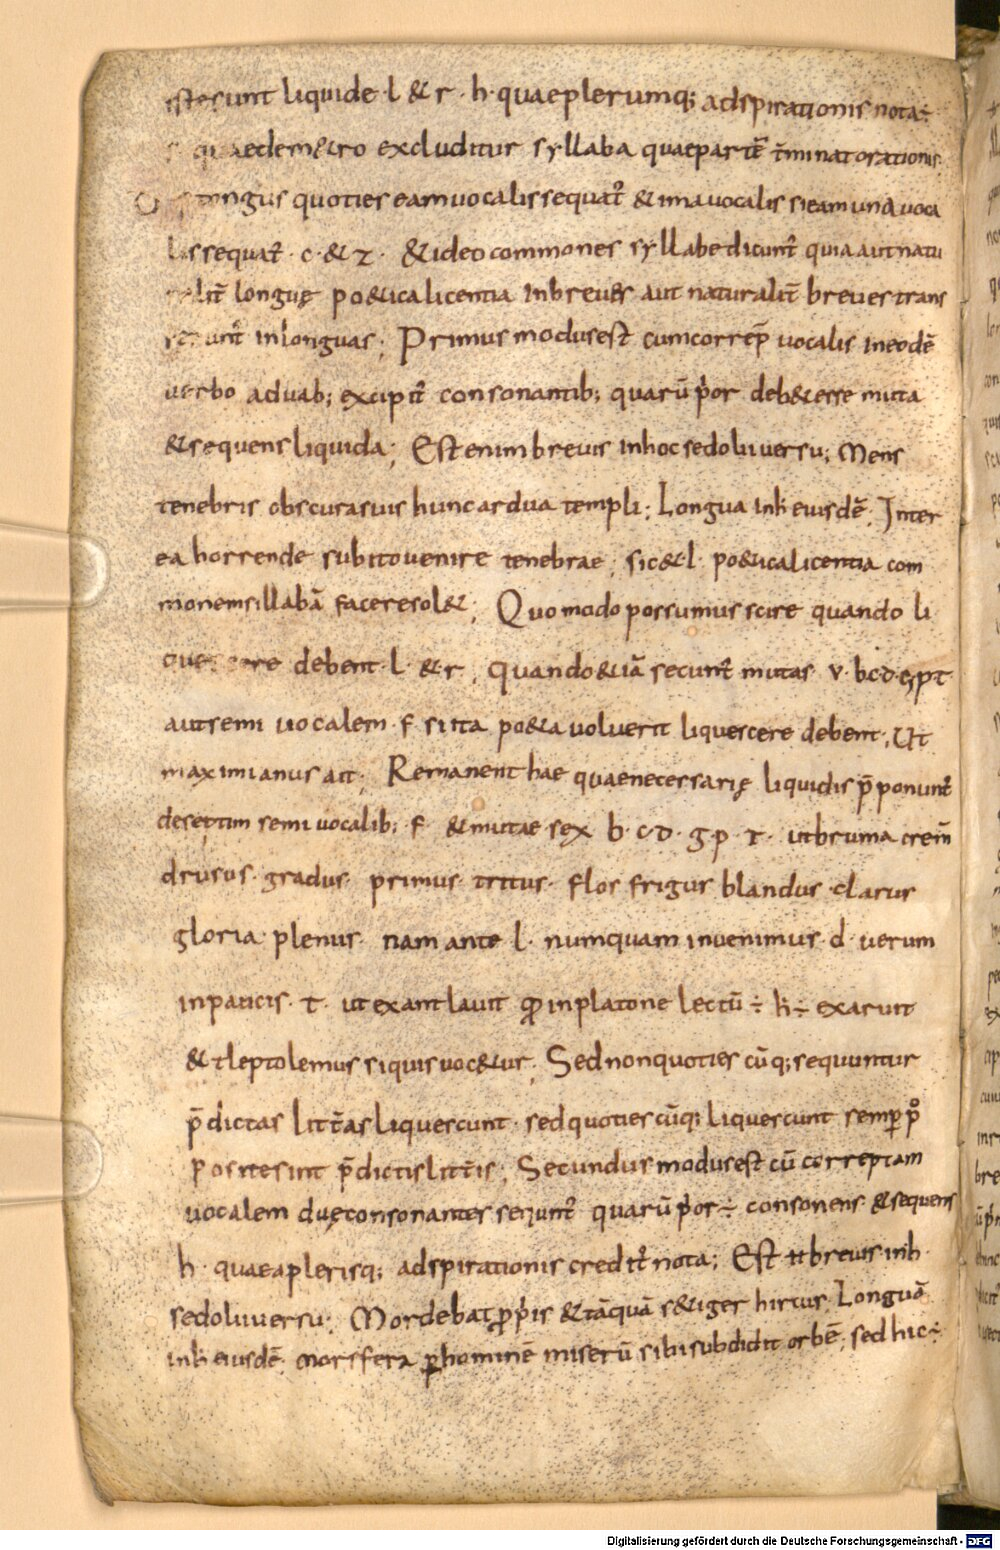 istesunt liquide · l · & r · h · quaeplerumq; adspirationis nota ÷
aedem&ro excluditur syllaba quaepartē t̄minat orationis
quoties eam vocalis sequat᷑ & ima vocalis si eam una voca
lis sequat᷑ · c · & z · & ideo commones syllabe dicunt᷑ quia aut natu
lit̄ longę po&ica licentia in breues aut naturalit̄ breues trans
unt᷑ in longuas; Primus modus est cum correp̄ vocalis in eodē
verbo a duab; excipit᷑ consonantib; quarū p̍or deb& esse muta
& sequens liquida; Est enim breuis in hoc sedolii uersu; Mens
tenebris obscura suis hunc ardua templi; Longua in ħ eiusdē; Inter
ea horrende subito uenire tenebrae; sic & l · po&ica licentia com
monem sillabā facere sol&; Quomodo possumus scire quando li
debent · l · & r; quando &iā secunt᷑ mutas · v · b c d g p t
aut semi uocalem · f · si ita po&a uoluerit liquescere debent; Ut
maximianus ait; Remanent hae quae necessarię liquidis p̄ponunt᷑
de septim semi vocalib; f · & mutae sex · b · c · d · g · p · t · ut bruma crem̄
drusus · gradus · primus · tritus · flos frigus blandus · clarus
gloria · plenus · nam ante · l · numquam inuenimus · d · verum
in paucis · t · ut exantlauit ꝓ in platone lectū ÷ ħ ÷ exarut
& tleptolemus siquis uoc&ur; Sed non quoties cūq; sequuntur
p̄dictas litt̄as liquescunt · sed quoties cūq; liquescunt semꝑ p̊
posite sint p̄dictis litt̄is; Secundus modus est cū correptam
uocalem duę consonantes sequnt᷑ quarū p̍or ÷ consonens & sequens
h · quae a plerisq; adspirationis credit᷑ nota; Est breuis in h̄
sedolii uersu; Mordebat ꝓp̍is & tāquā s&iger hirtus; Longuā
in ħ eiusdē · mors fera ꝑ hominē miserū sibi subdidit orbē; sed hic ÷
Digitalisierung gefördert durch die Deutsche Forschungsgemeinschaft - DFG